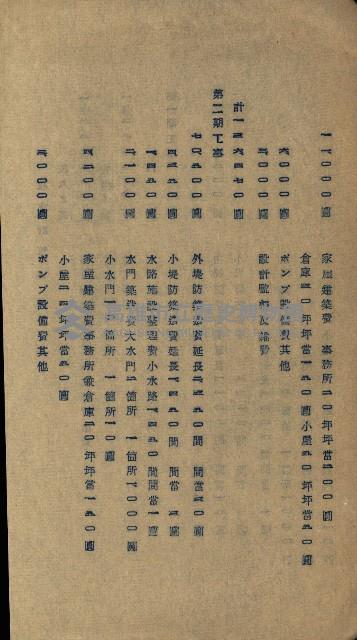 一一〇〇〇圓 家屋建築費 事務所二〇坪坪當二〇〇圓
倉庫三〇坪坪當一五〇圓小屋五〇坪坪當五〇圓
六〇〇〇圓 ポンプ設備費其他
三〇〇〇圓 設計監督及雜費
計一三六四七〇圓
第二期工事
七〇五〇〇圓 外堤防築造費延長二三五〇間 間當三〇圓
四三五〇圓 小堤防築造費延長一四五〇間 間當三圓
一四五〇圓 水路施設整理費小水路一四五〇間間當一圓
二一〇〇圓 水門築設費大水門二箇所 一箇所一〇〇〇圓
小水門一箇所 一箇所一〇〇圓
四二〇〇圓 家屋建築費事務所兼倉庫二〇坪坪當一五〇圓
小屋二四坪坪當五〇圓
三〇〇〇圓 ポンプ設備費其他